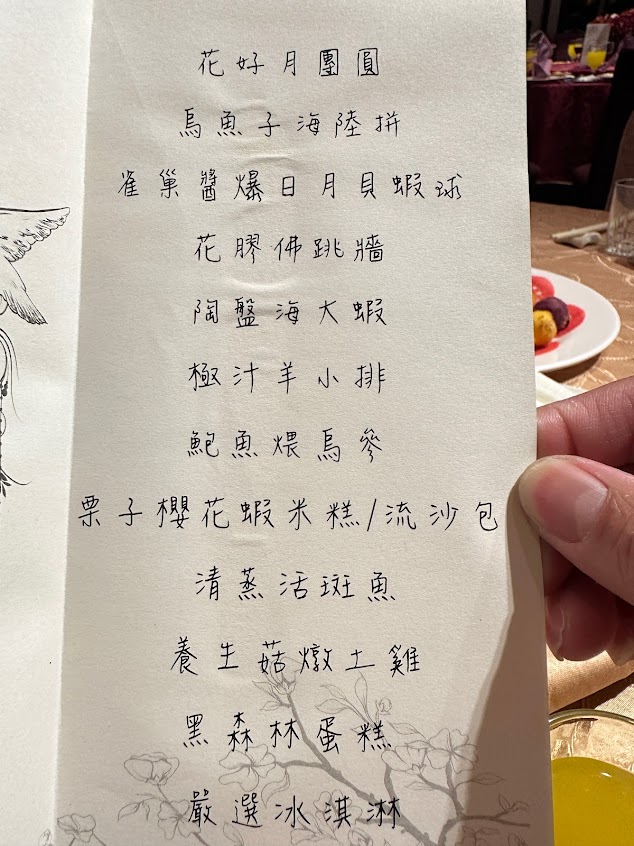 花好月團圓
烏魚子海陸拼
雀巢醬爆日月貝蝦球
花膠佛跳牆
陶盤海大蝦
極汁羊小排
鮑魚煨烏參
栗子櫻花蝦米糕/流沙包
清蒸活斑魚
養生菇燉土雞
黑森林蛋糕
嚴選冰淇淋